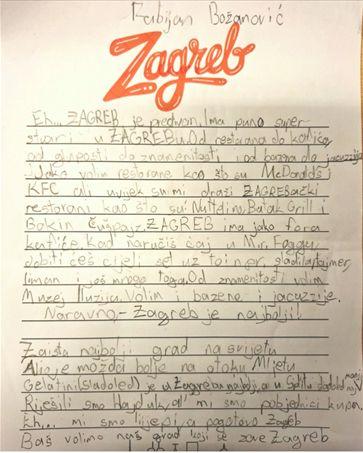 Fabijan Božanović
Zagreb
Eh... ZAGREB je predivan. Ima puno super
stvari u ZAGREBu. Od restorana do kafića,
od gluposti do znamenitosti i od bazena do jacuzzija
Jako volim restorane kao što su McDonalds i
KFC ali uvijek su mi draži ZAGREBački
restorani kao što su: Nuttelino, Batak Grill i
Bakin Čušpajz. ZAGREB ima jako fora
kafiće, kad naručiš čaj u Mr. Foggu
dobiti ćeš cijeli set uz toiner,
limun i još mnogo toga. Od znamenitosti volim
Muzej Iluzija. Volim i bazene i jacuzzije.
Naravno - Zagreb je najbolji!
Zaista najbolji grad na svijetu
Ali je možda bolje na otoku Mljetu
Gelatini (sladoled) je u Zagrebu najbolji, a u Splitu
Riješili smo Hajduk, al' mi smo pobjednici kupa
Eh... mi smo lijepi a pogotovo Zagreb
Baš volimo naš grad koji se zove Zagreb